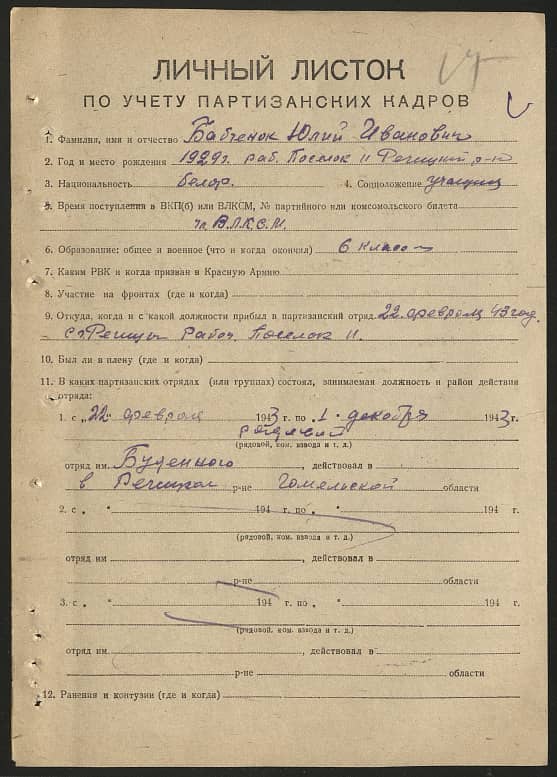 ЛИЧНЫЙ ЛИСТОК
ПО УЧЕТУ ПАРТИЗАНСКИХ КАДРОВ
1. Фамилия, имя и отчество Бабченок Юлий Иванович
2. Год и место рождения 1929г. раб. Поселок II Речицкий р-н
3. Национальность белор. 4. Соцположение учащийся
5. Время поступления в ВКП(б) или ВЛКСМ, № партийного или комсомольского билета
чл. В.Л.К.С.М.
6. Образование: общее и военное (что и когда окончил) 6 классов
7. Каким РВК и когда призван в Красную Армию
8. Участие на фронтах (где и когда)
9. Откуда, когда и с какой должности прибыл в партизанский отряд 22 февраля 43 год.
Речицы Рабоч. Поселок II.
10. Был ли в плену (где и когда)
11. В каких партизанских отрядах (или группах) состоял, занимаемая должность и район действия
отряда:
1. с „22" февраля 1943 г. по 1. декабря 1943 г.
рядовой
(рядовой, ком. взвода и т. д.)
отряд им. Буденного, действовал в
в Речицком р-не Гомельской области
2. с „ " 194 г. по „ " 194 г.
(рядовой, ком. взвода и т. д.)
отряд им , действовал в
р-не области
3. с „ " 194 г. по „ " 194 г.
(рядовой, ком. взвода и т. д.)
отряд им. , действовал в
р-не области
12. Ранения и контузии (где и когда)